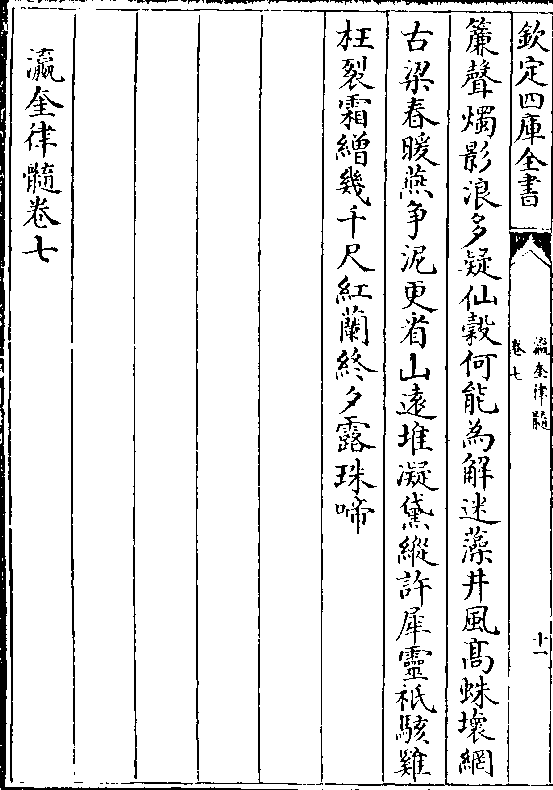 欽定四庫全書
瀛奎律髓
卷七
十一
簾聲燭影浪多疑仙縠何能為解迷藻井風髙蛛壞網
古梁春暖燕争泥更省山遠堆凝黛縱許犀靈祇駭雞
枉裂霜繒幾千尺紅蘭終夕露珠啼
瀛奎律髓卷七